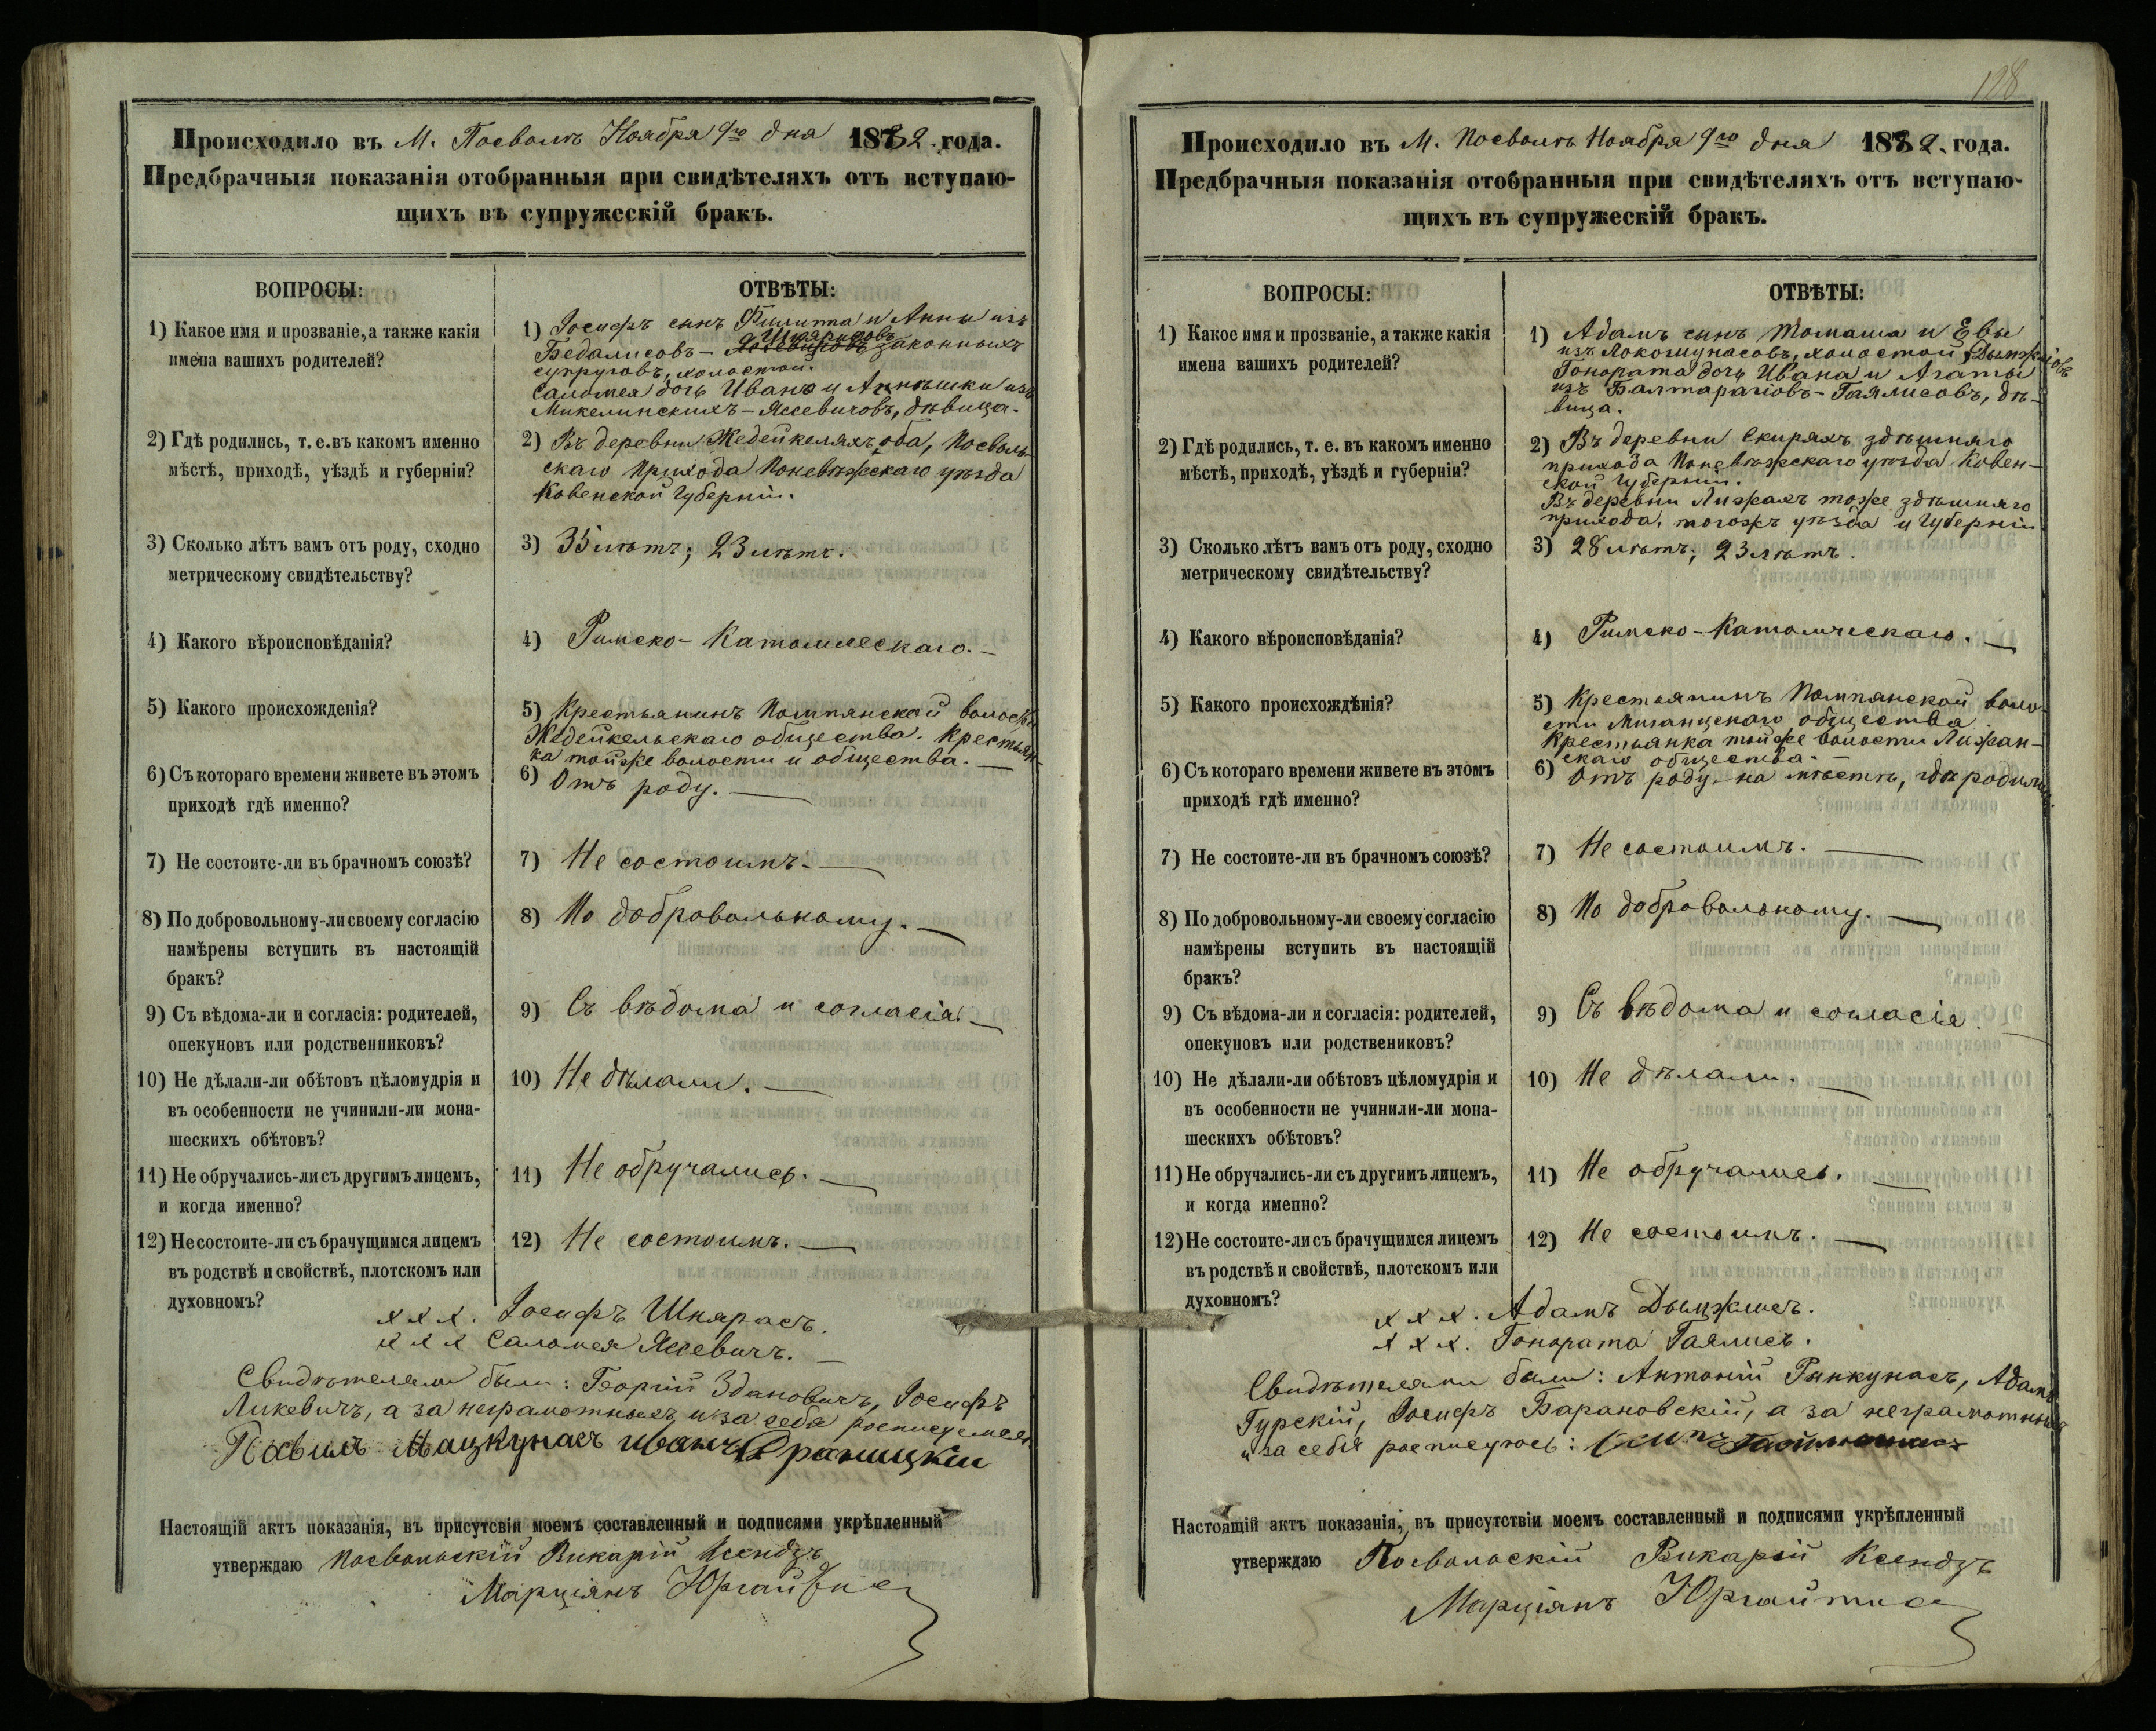 Происходило въ М. Посволѣ Ноября 9го дня 1882. года.
Предбрачныя показанія отобранныя при свидѣтеляхъ отъ вступаю-
щихъ въ супружескій бракъ.
ВОПРОСЫ:
1) Какое имя и прозваніе, а также какія
имена вашихъ родителей?
2) Гдѣ родились, т. е. въ какомъ именно
мѣстѣ, приходѣ, уѣздѣ и губерніи?
3) Сколько лѣтъ вамъ отъ роду, сходно
метрическому свидѣтельству?
4) Какого вѣроисповѣданія?
5) Какого происхожденія?
6) Съ котораго времени живете въ этомъ
приходѣ гдѣ именно?
7) Не состоите-ли въ брачномъ союзѣ?
8) По добровольному-ли своему согласію
намѣрены вступить въ настоящій
бракъ?
9) Съ вѣдома-ли и согласія: родителей,
опекуновъ или родственниковъ?
10) Не дѣлали-ли обѣтовъ цѣломудрія и
въ особенности не учинили-ли мона-
шескихъ обѣтовъ?
11) Не обручались-ли съ другимъ лицемъ,
и когда именно?
12) Не состоите-ли съ брачущимся лицемъ
въ родствѣ и свойствѣ, плотскомъ или
духовномъ?
ОТВѢТЫ:
1) Іосифъ сынъ Филипа и Анны изъ
Шкярасовъ
Бедалисовъ – законныхъ
супруговъ, холостой.
Саломея дочь Ивана и Агнѣшки изъ
Микелинскихъ – Ясевичовъ, дѣвица.
2) Въ деревни Жедейкеляхъ оба, Посволь-
скаго Прихода Поневѣжскаго уѣзда
Ковенской Губерніи.
3) 35 лѣтъ; 23 лѣтъ.
4) Римско-Католическаго. –
5) Крестьянинъ Помпянской волости
Жедейкельскаго общества. Крестьян-
ка тойже волости и общества. –
6) Отъ роду. –
7) Не состоимъ. –
8) По добровольному. –
9) Съ вѣдома и согласія. –
10) Не дѣлали. –
11) Не обручались. –
12) Не состоимъ. –
x x x. Іосифъ Шкярасъ.
x x x Саломея Ясевичъ. –
Свидѣтелями были: Георгій Здановичъ, Іосифъ
Ликевичъ, а за неграмотныхъ и за себя росписуемся
Павилъ Мацкунасъ иванъ
Настоящій актъ показанія, въ присутсвіи моемъ составленный и подписями укрѣпленный
утверждаю Посвольскій Викарій Ксендзъ
Марціянъ Юргайтис
128
Происходило въ М. Посволѣ Ноября 9го дня 1882. года.
Предбрачныя показанія отобранныя при свидѣтеляхъ отъ вступаю-
щихъ въ супружескій бракъ.
ВОПРОСЫ:
1) Какое имя и прозваніе, а также какія
имена вашихъ родителей?
2) Гдѣ родились, т. е. въ какомъ именно
мѣстѣ, приходѣ, уѣздѣ и губерніи?
3) Сколько лѣтъ вамъ отъ роду, сходно
метрическому свидѣтельству?
4) Какого вѣроисповѣданія?
5) Какого происхождѣнія?
6) Съ котораго времени живете въ этомъ
приходѣ гдѣ именно?
7) Не состоите-ли въ брачномъ союзѣ?
8) По добровольному-ли своему согласію
намѣрены вступить въ настоящій
бракъ?
9) Съ вѣдома-ли и согласія: родителей,
опекуновъ или родствениковъ?
10) Не дѣлали-ли обѣтовъ цѣломудрія и
въ особенности не учинили-ли мона-
шескихъ обѣтовъ?
11) Не обручались-ли съ другимъ лицемъ,
и когда именно?
12) Не состоите-ли съ брачущимся лицемъ
въ родствѣ и свойствѣ, плотскомъ или
духовномъ?
ОТВѢТЫ:
1) Адамъ сынъ Томаша и Евы
изъ Локошунасовъ, холостой Дымжиовъ
Гонората дочь Ивана и Агаты
изъ Балтарагіовъ – Гаялисовъ, дѣ-
вица.
2) Въ деревни Скиряхъ здѣшняго
прихода Поневѣжскаго уѣзда Ковен-
ской Губерніи.
Въ деревни Лижахъ тоже здѣшняго
прихода, тогожъ уѣзда и Губерніи
3) 28 лѣтъ; 23 лѣтъ.
4) Римско-Католическаго. –
5) Крестьянинъ Помпянской воло-
сти общества.
Крестьянка тойже волости Лижан-
скаго общества. –
6) Отъ роду, на мѣстѣ, гдѣ родились.
7) Не состоимъ. –
8) По добровольному. –
9) Съ вѣдома и согласія. –
10) Не дѣлали. –
11) Не обручались. –
12) Не состоимъ. –
x x x. Адамъ Дымжисъ.
x x x. Гонората Гаялисъ.
Свидѣтелями были: Антоній Ринкунасъ, Адамъ
Гурскій, Іосифъ Барановскій, а за неграмотныхъ
и за себя росписуюсь:
Настоящій актъ показанія, въ присутствіи моемъ составленный и подписями укрѣпленный
утверждаю Посвольскій Викарій Ксендзъ
Марціянъ Юргайтис